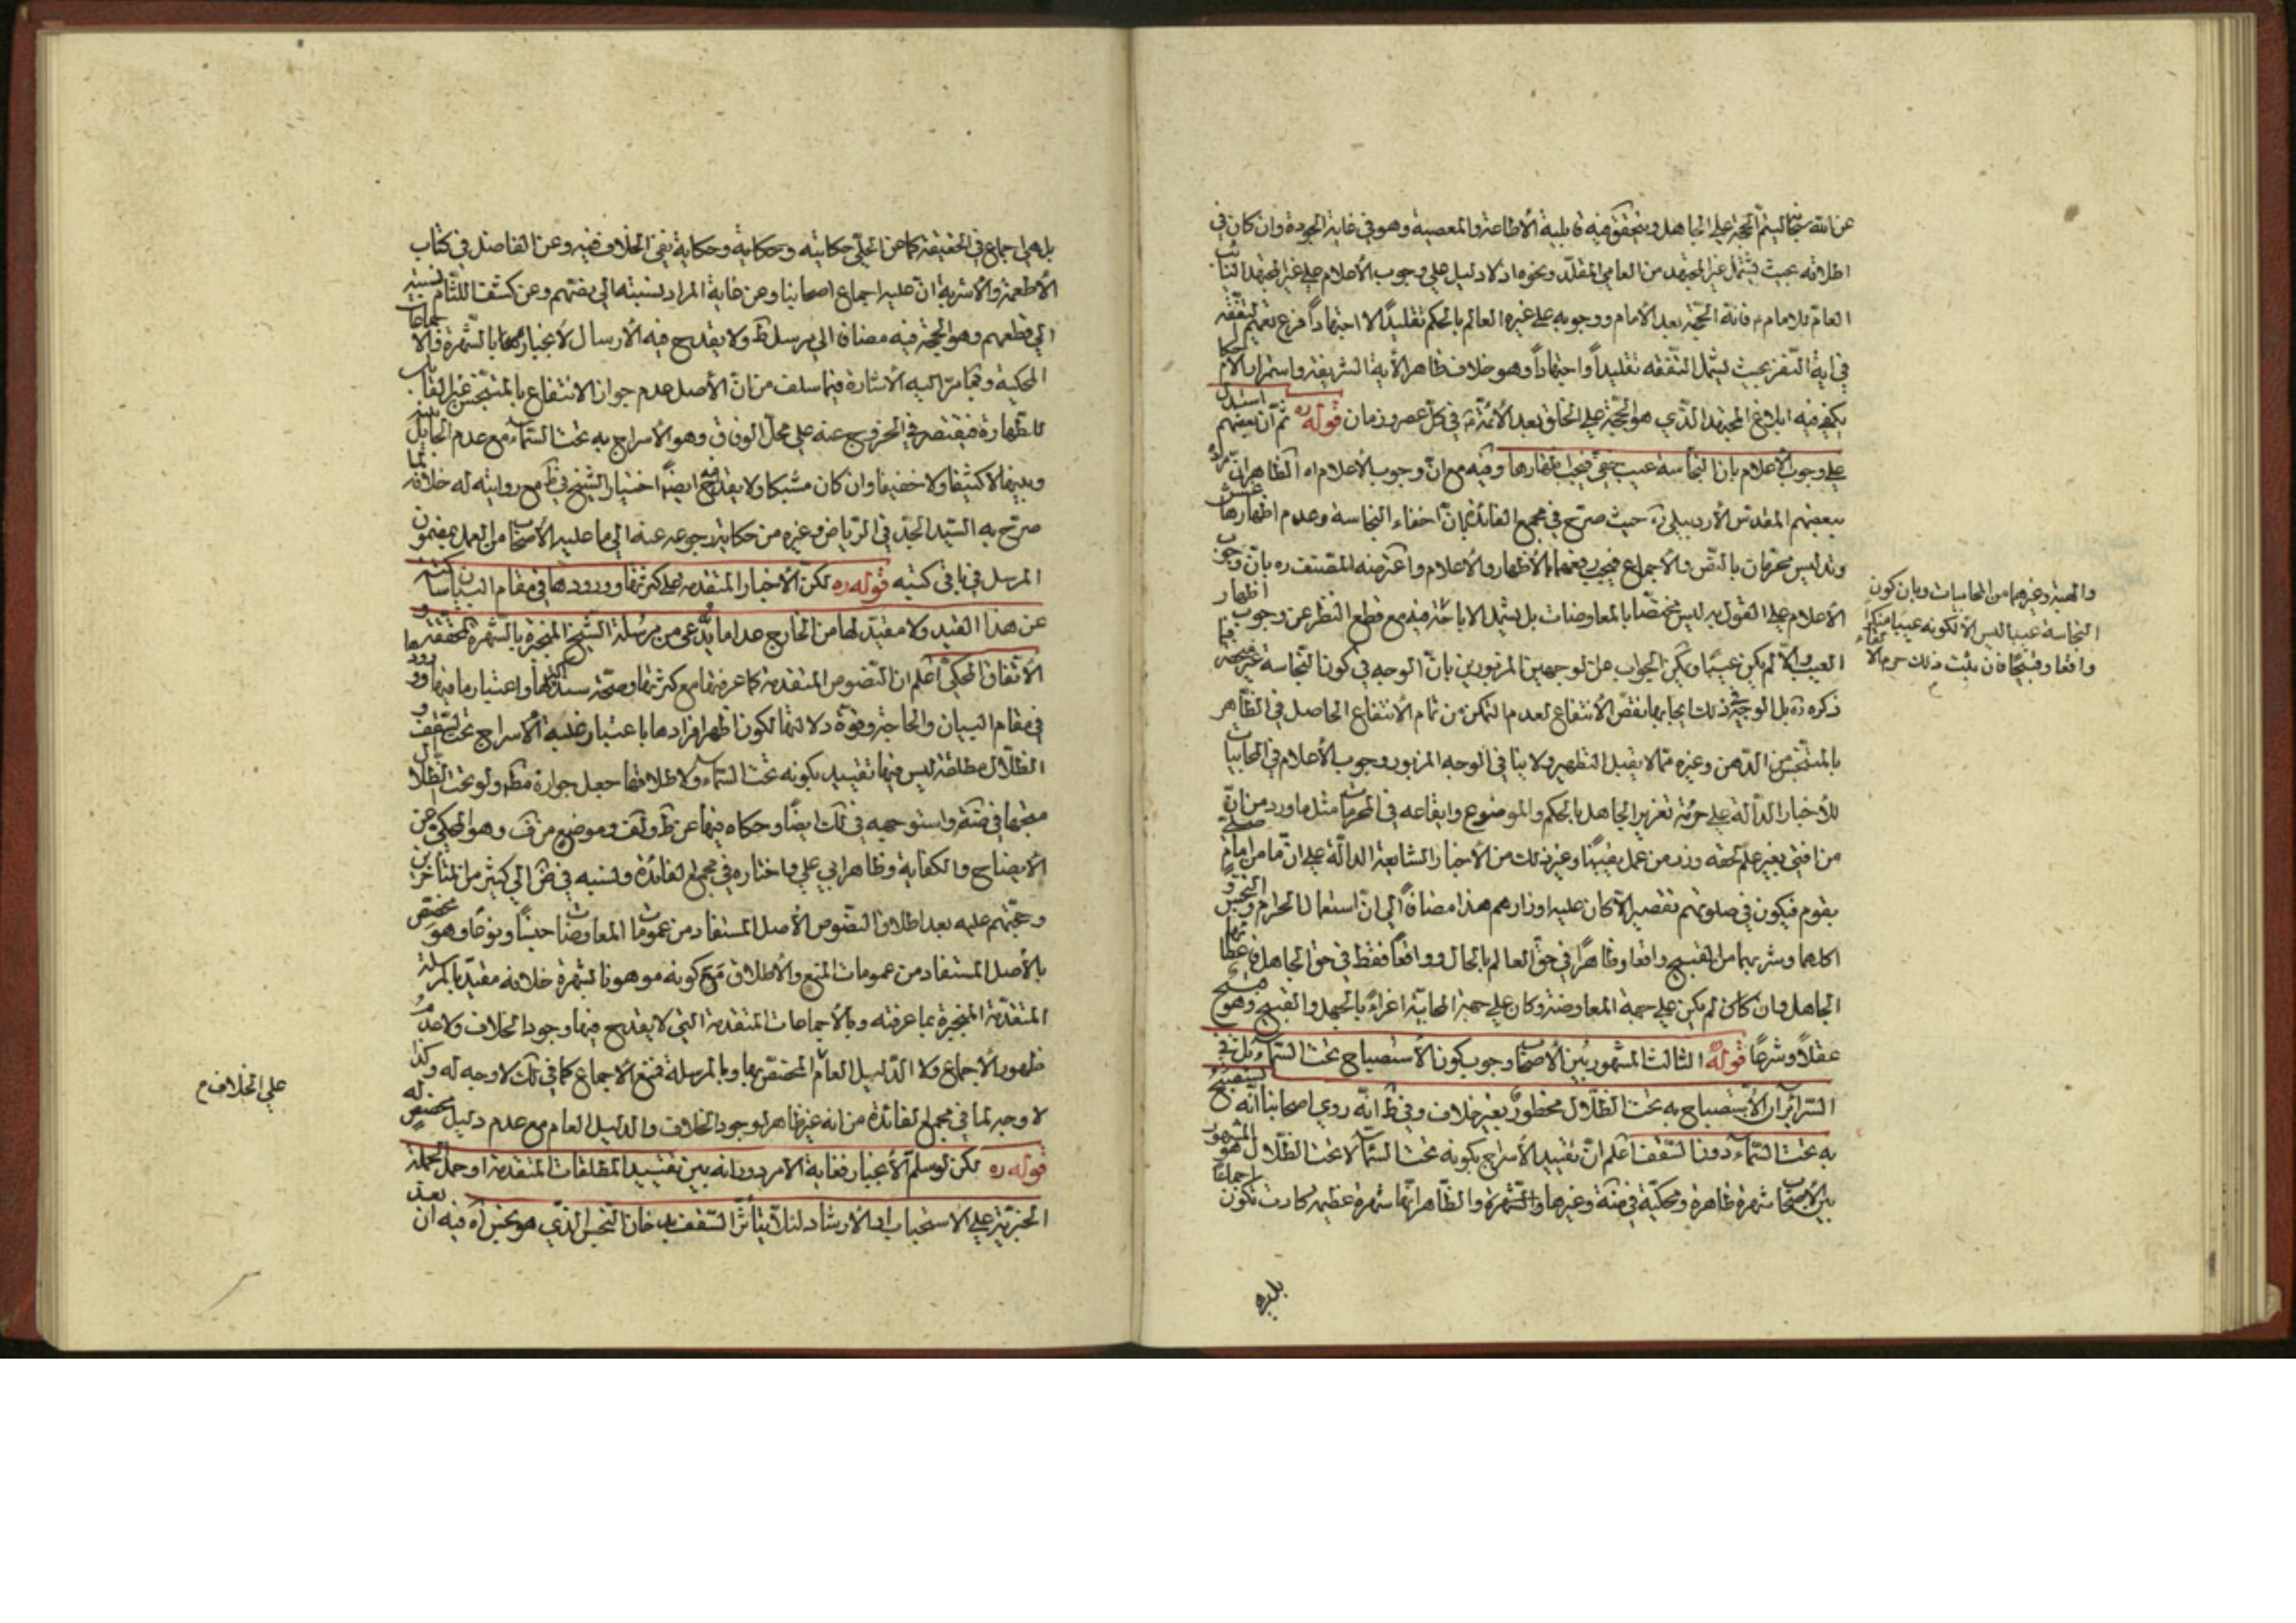 عن الله سبحانه ليتم الحجة على الجاهل ويتحقق فيه قابلية الأطاعة والمعصية وهو في غاية الجودة وان كان في
اطلاقه بحيث يشمل غير المجتهد من العامي المقلد ونحوه اذ لا دليل على وجوب الأعلام على غير المجتهد النائب
العام للامام فانه الحجة بعد الأمام ووجوبه على غيره العالم بالحكم تقليداً لا اجتهاداً فرع تعميم التفقه
في اية النفر بحيث ليشمل التفقه تقليداً واجتهاداً وهو خلاف ظاهر الأية الشريفة واستمرار الأحكام
يكفي فيه ابلاغ المجتهد الذي هو الحجة على الخلق بعد الأئمة في كل عصر وزمان قوله ره ثم ان بعضهم استدل
على وجوب الاعلام بان النجاسة عيب خفي فيجب اظهارها وفيه مع ان وجوب الأعلام اه الظاهر ان مراده
ببعضهم المقدس الأردبيلي ره حيث صرح في مجمع الفائدة بان اخفاء النجاسة وعدم اظهارها غش
وتدليس محرمان بالنص والأجماع فيجب دفعهما بالأظهار والأعلام واعترضه المصنف ره بان وجوب
الأعلام على القول به ليس مختصا بالمعاوضات بل يشمل الاباحة فيه مع قطع النظر عن وجوب اظهار
العيب والا لم يكن عيبا ويمكن الجواب عن الوجهين المزبورين بان الوجه في كون النجاسة غير منحصر فيما
ذكره ره بل الوجه في ذلك ايجابها نقص الأنتفاع لعدم التمكن من تمام الأنتفاع الحاصل في الظاهر
بالمتنجس من الدهن وغيره مما لا يقبل التطهير ولا ينافي الوجه المزبور وجوب الأعلام في المحابيات
للأخبار الدالة على حرمة تغرير الجاهل بالحكم والموضوع وايقاعه في المحرمات مثل ما ورد من ان
من افتى بغير علم لحقه وزر من عمل بفتياه وغير ذلك من الأخبار الشايعة الدالة على ان ما من امام صلى
بقوم فيكون في صلوتهم تقصير الا كان عليه اوزارهم هذا مضافاً الى ان استعمال الحرام والنجس
اكلهما وشربهما من القبيح واقعا وظاهراً في حق العالم بالحال وواقعاً فقط في حق الجاهل فاعطائهما
الجاهل وان كان لم يكن على جهة المعاوضة وكان على جهة المحاباة اغراءً بالجهل والقبيح وهو قبيح
عقلاً وشرعًا قوله الثالث المشهور بين الأصحاب وجوب كون الأستصباح تحت السماء بل في
السرائر ان الأستصباح به تحت الظلال محظور بغير خلاف وفي ط انه روي اصحابنا انه يستصبح
به تحت السماء دون السقف اعلم ان تقييد الأسراج بكونه تحت السماء لا تحت الظلال هو المشهور
بين الأصحاب شهرة ظاهرة ومحكية في ضه وغيرها والشهرة والظاهر انها شهرة عظيمة كادت تكون اجماعا
والهبة وغيرهما من المحابيات وبان كون
النجاسة عيبا ليس الا لكونه عيبا منكرا
واقعا وقبيحًا فان ثبت ذلك حرم الالقاء
بل هي اجماع في الحقيقة كما عن الحلي حكايته وحكاية وحكاية نفي الخلاف فيه وعن الفاضل في كتاب
الأطعمة والأشربة ان عليه اجماع اصحابنا وعن غاية المراد نسبته الى بعضهم وعن كشف اللثام نسبته
الى قطعهم وهو الحجة فيه مضافا الى مرسل ط ولا يقدح فيه الأرسال لأنجبارها بالشهرة والاجماعات
المحكية ومما مر اليه الأشارة فيما سلف من ان الأصل عدم جواز الانتفاع بالمتنجس غير القابل
للطهارة فيقتصر في الخروج عنه على محل الوفاق وهو الأسراج به تحت السماء مع عدم الحايل بينه
وبينها لا كثيفا ولا خفيفا وان كان مشبكا ولا يقدح ايضًا اختيار الشيخ في ط مع روايته له خلافه لما
صرح به السيد الجد في الرياض وغيره من حكاية رجوعه عنه الى ما عليه الأصحاب من العمل بمضمون
المرسل في باقي كتبه قوله ره لكن الأخبار المتقدمة على كثرتها وورودها في مقام البيان ساكتة
عن هذا القيد ولا مقيد لها من الخارج عدا ما يدعى من مرسلة الشيخ المنجبرة بالشهرة المحققة و
الأتفاق المحكي اعلم ان النصوص المتقدمة كما عرفتها مع كثرتها وصحة سند اكثرها واعتبارها فيها ورودها
في مقام البيان والحاجة وقوة دلالتها لكون اظهر افرادها باعتبار غلبة الأسراج تحت السقف و
الظلال مطلقة ليس فيها تقييد بكونه تحت السماء ولاطلاقها جعل جوازه مطلقا ولو تحت الظلال
وحجتهم عليه بعد اطلاق النصوص الأصل المستفاد من عمومات المعاوضات جنسًا ونوعًا وهو مختص
بالأصل المستفاد من عمومات المنع والأطلاق مع كونه موهونا لشهرة خلافه مقيد بالمرسلة
المتقدمة المنجبرة بما عرفته وبالأجماعات المتقدمة التي لا يقدح فيها وجود الخلاف ولا عدم
ظهور الأجماع ولا الدليل العام المختص بها وبالمرسلة فمنع الأجماع كما في لك لا وجه له وكذا
لا وجه لما في مجمع الفائدة من انه غير ظاهر لوجود الخلاف والدليل العام مع عدم دليل مخصص له
قوله ره لكن لو سلم الأنجبار فغاية الأمر دورانه بين تقييد المطلقات المتقدمة او حمل الجملة
الخبرية على الاستحباب او الأرشاد لئلا يتأثر السقف بدخان النجس الذي هو نجس اه فيه ان بعد
على الخلاف م